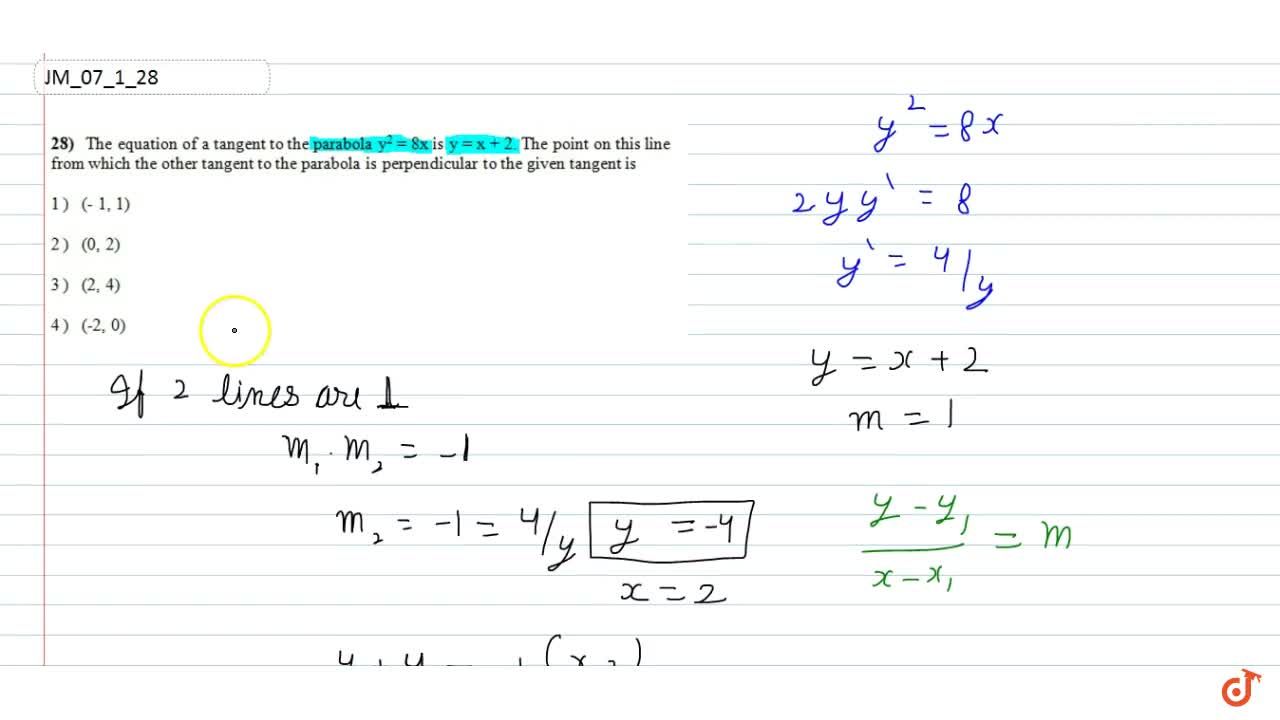 JM_07_1_28
28) The equation of a tangent to the parabola y² = 8x is y = x + 2. The point on this line
from which the other tangent to the parabola is perpendicular to the given tangent is
1) (- 1, 1)
2) (0, 2)
3) (2, 4)
4) (-2, 0)
If 2 lines are ⊥
m₁ . m₂ = -1
m₂ = -1 = 4/y y = -4
x = 2
y² = 8x
2yy' = 8
y' = 4/y
y = x + 2
m = 1
y - y₁
x - x₁ = m